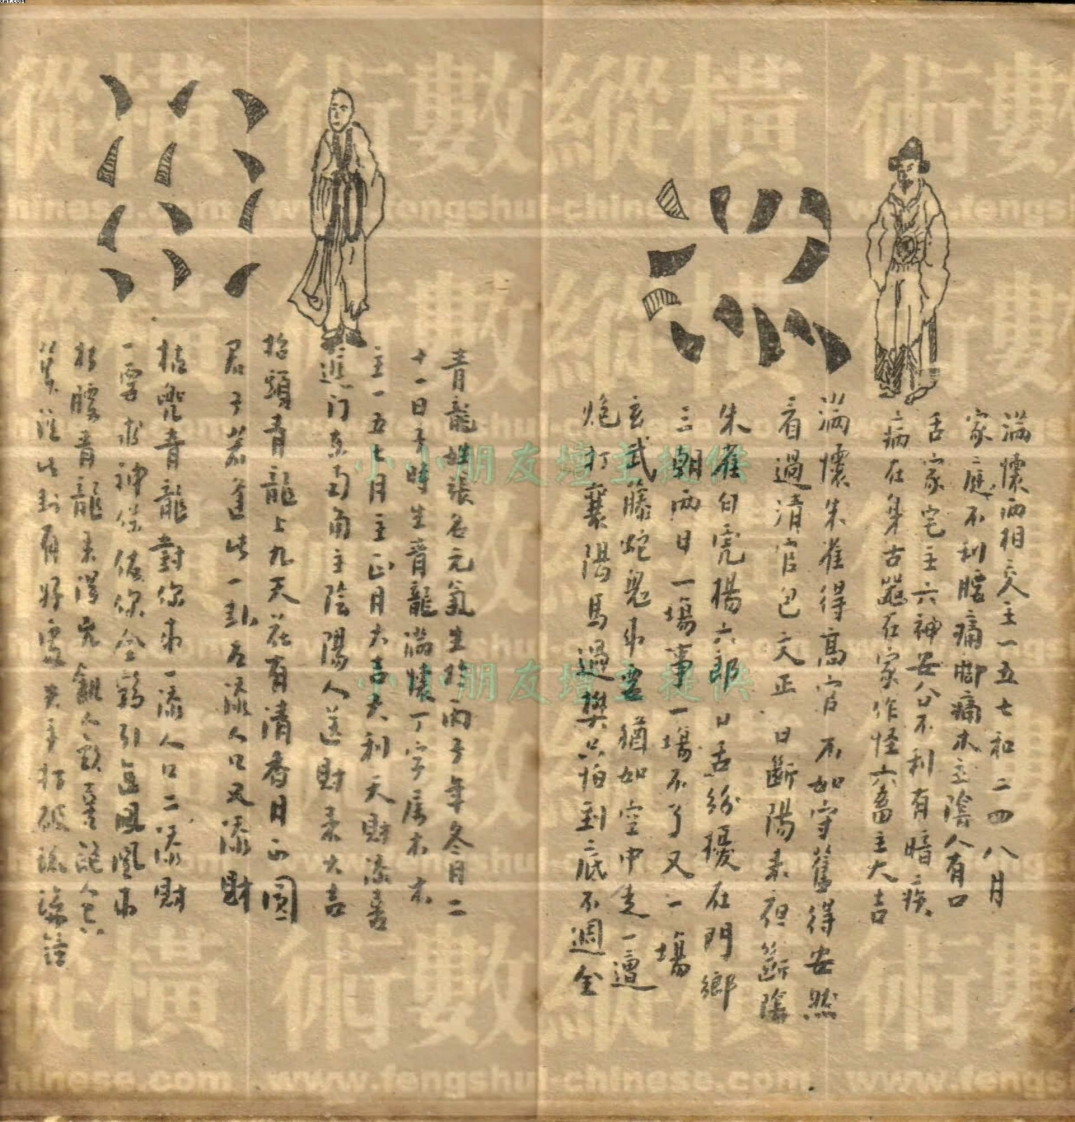 满懷两相交主一五七和二四八月
家庭不利腰痛脚痛木主陰人有口
舌家宅主六神安分不利有暗疾
病在身古器在家作怪六畜主大吉
满懷朱雀得髙官不如守舊得安然
看過清官包文正日斷陽来夜斷陰
朱雀白虎楊六郎口舌紛擾在門鄉
三朝两日一場事一場不了又一場
玄武藤蛇鬼來灵猶如空中走一遭
炮打襄陽馬過樊只怕到底不週全
青龍姓張名元氣生於丙子年冬月二
十一日子時生青龍满懷丁字属木木
主一五七月主正月大吉大利天財添喜
進门东南角主陰陽人送財来大吉
抬頭青龍上九天花有清香月正圓
君子若逢此一卦又添人口又添財
青龍對你來一添人口二添財
一要求神保佑你金鷄引進凤凰來
青龍来得
此卦有好處
縱橫術數 縱橫術數
www.fengshui-chinese.com
小小朋友壇主提供
小小朋友壇主提供